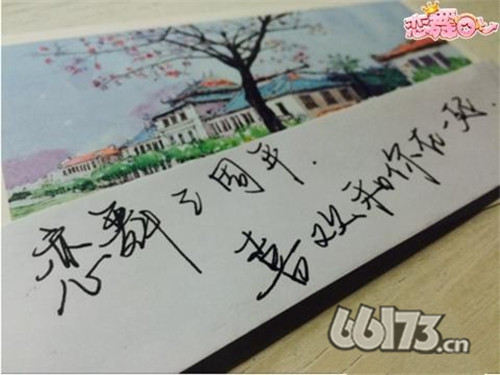 恋舞OL
恋舞三周年.
喜欢和你在一起
66173.cn